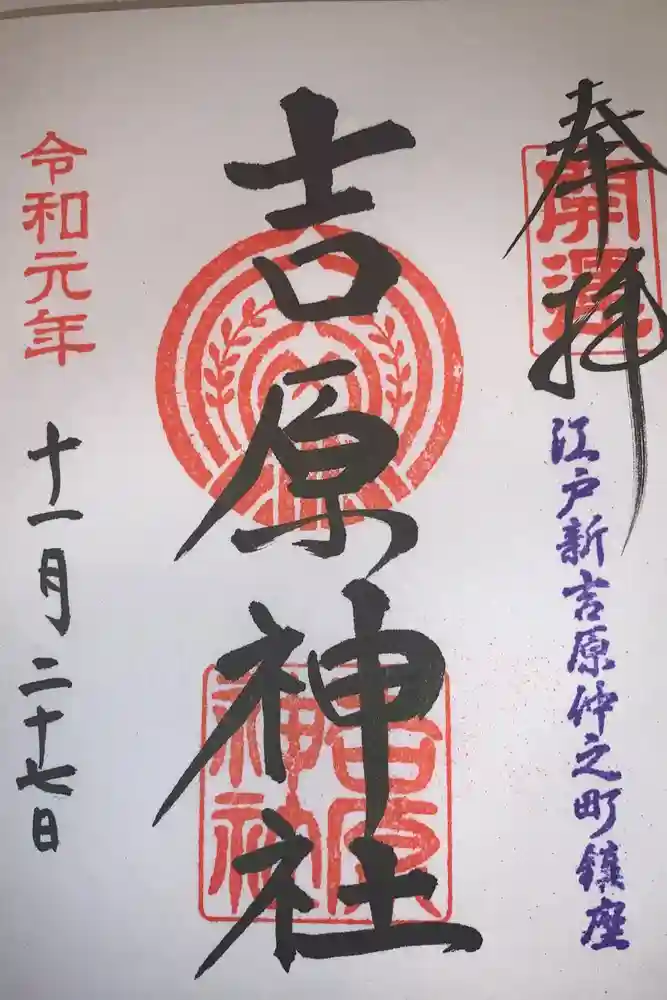 奉拝
開運
江戸新吉原仲之町鎮座
吉原神社
吉原
神社
令和元年
十一月二十七日